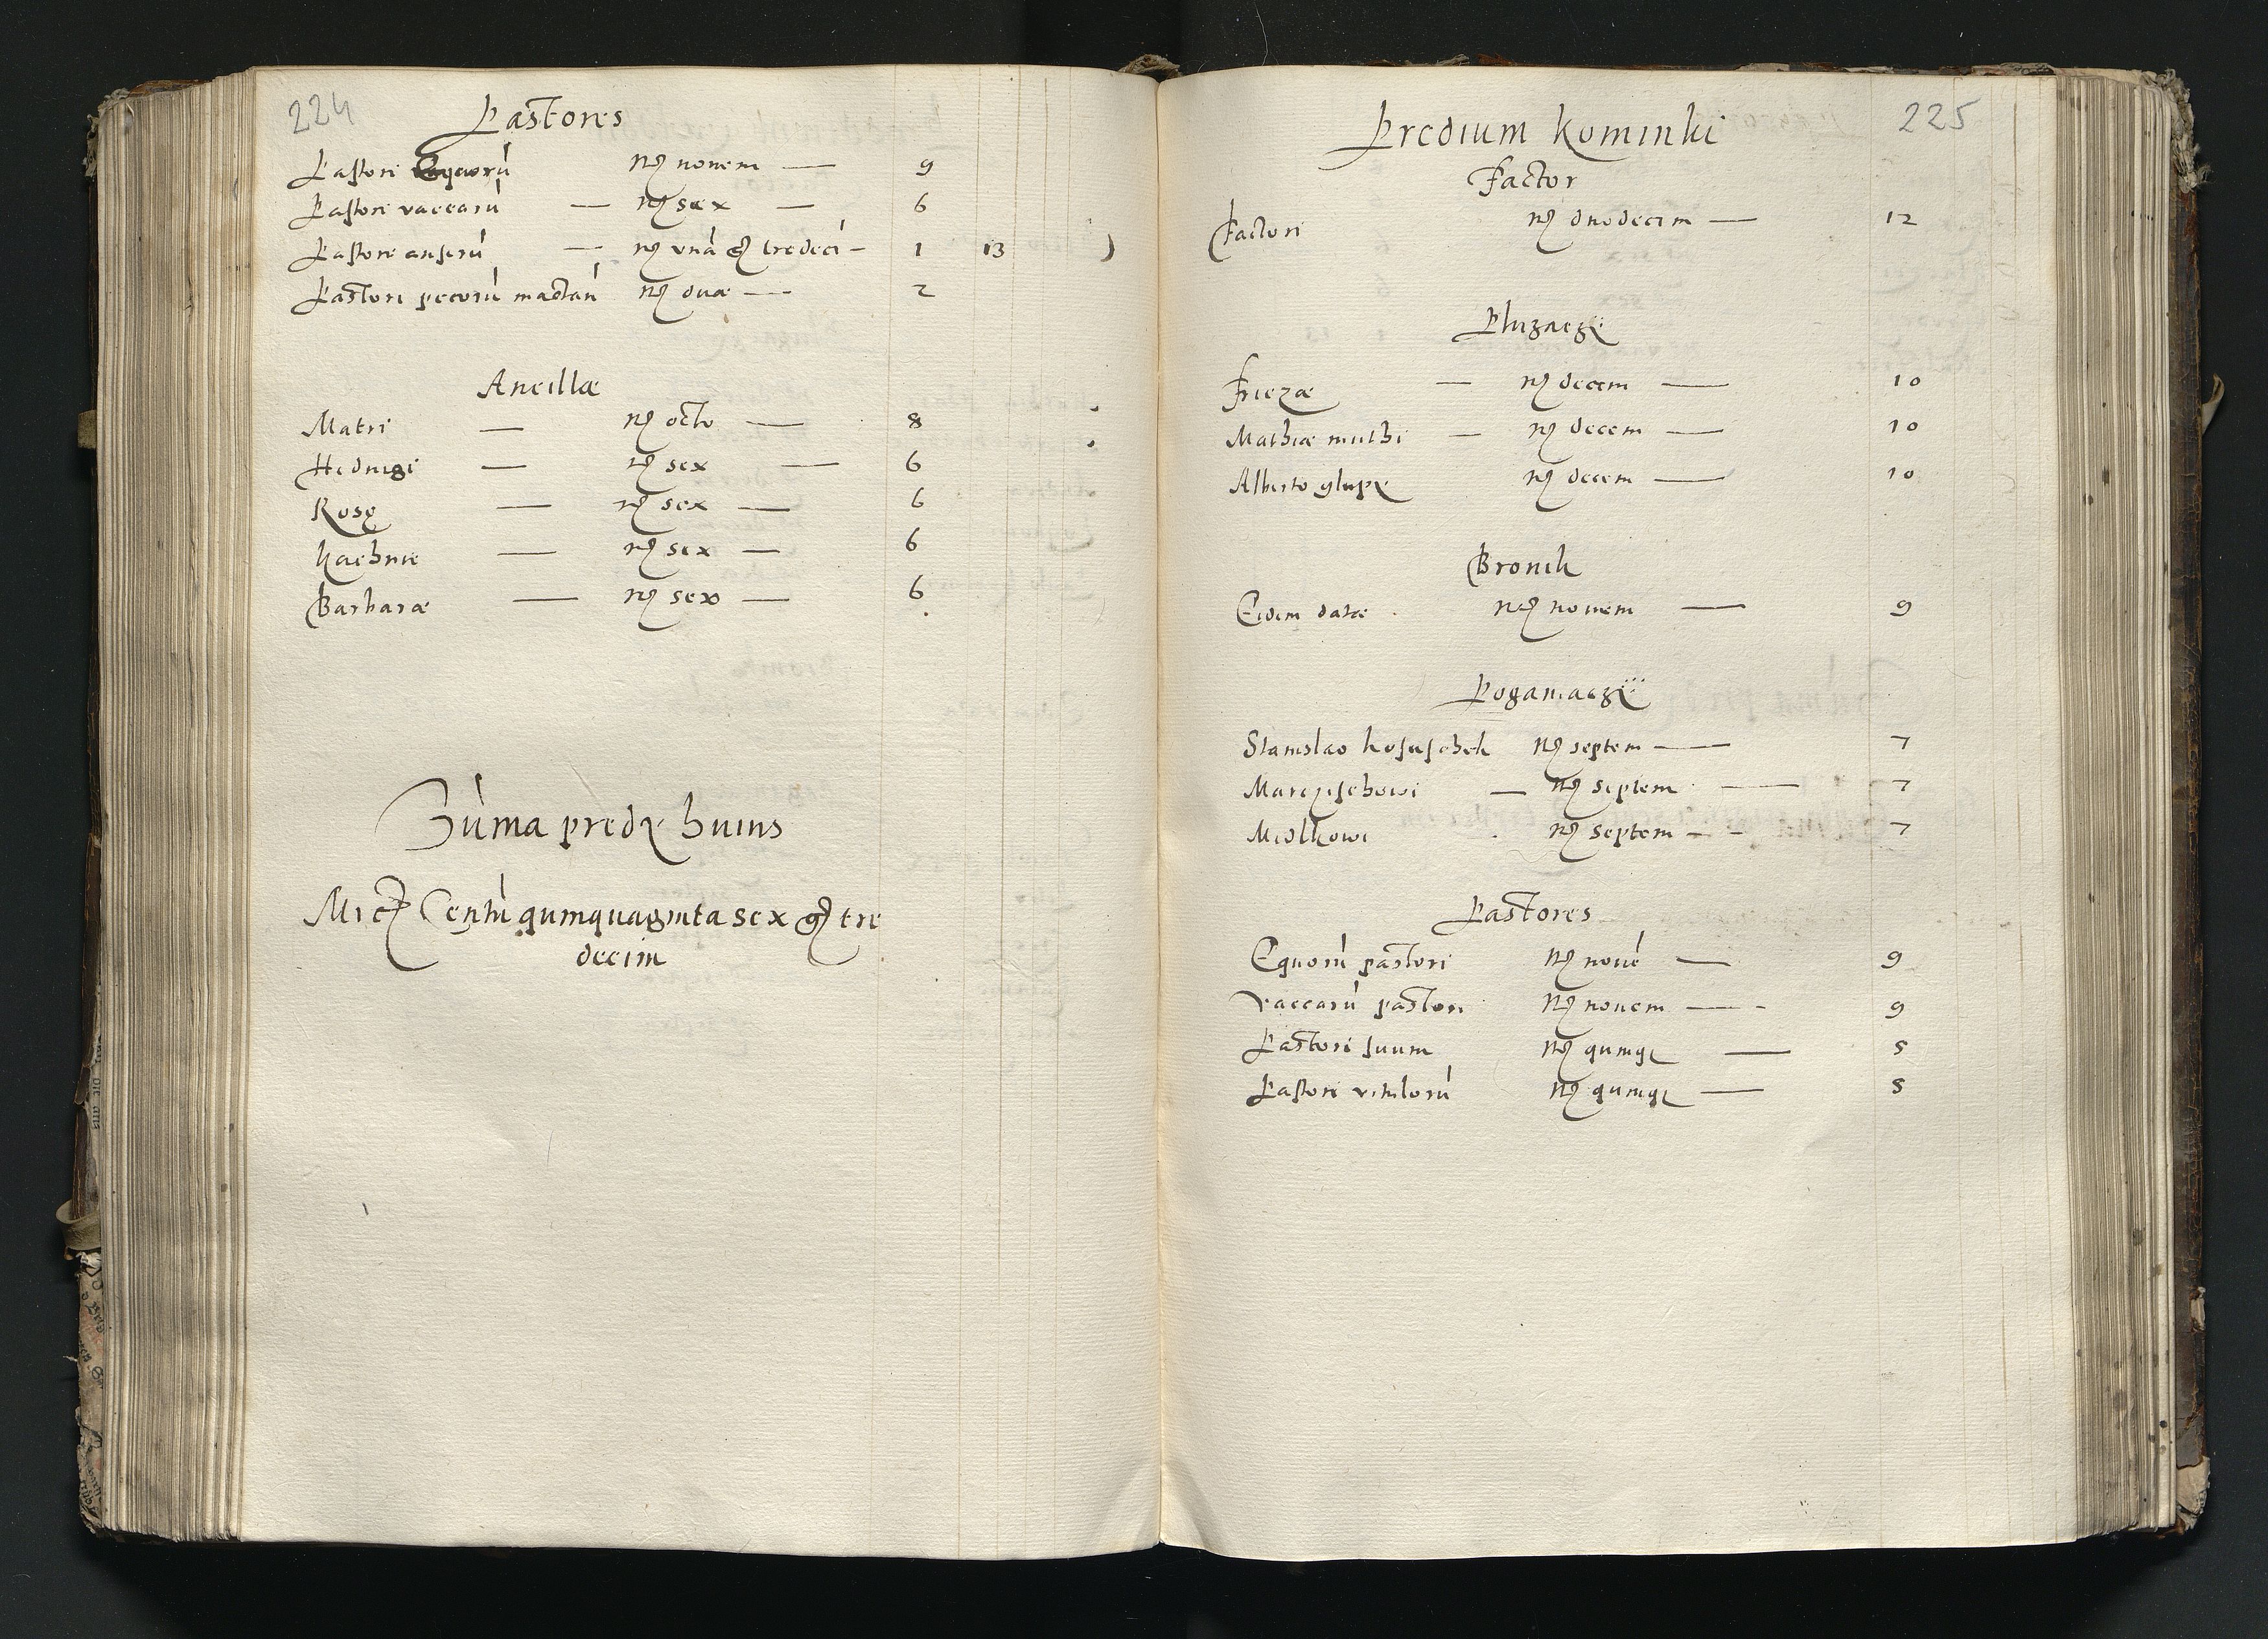 224
Pastores
Pastori Equorū mꝝ nouem — 9
Pastori vaccarū — mꝝ sex — 6
Pastori anserū — mꝝ vnā gꝝ tredeci — 1 13
Pastori pecorū mactan̄ mꝝ duæ — 2
Ancillæ
Matri — mꝝ octo — 8
Heduigi — mꝝ sex — 6
Rosę — mꝝ sex — 6
Kachnie — mꝝ sex — 6
Barbaræ — mꝝ sex — 6
Sūma predÿ huius
Mrcꝝ Centū quinquaginta sex gꝝ tre
decim
225
Predium Kominki
Factor
Factori mꝝ duodecim — 12
Plugaczÿ
Friczæ — mꝝ decem — 10
Mathiæ muthi — mꝝ decem — 10
Alberto glupÿ mꝝ decem — 10
Bronik
Eidem datæ mꝝ nouem — 9
Poganiaczÿ
Stanislao kosuschek mꝝ septem — 7
Marczischowi — mꝝ septem — 7
Miolkowi mꝝ septem — 7
Pastores
Equorū pastori mꝝ nouē — 9
vaccarū pastori mꝝ nouem — 9
Pastori suum mꝝ quinqꝫ — 5
Pastori vitulorū mꝝ quinqꝫ — 5